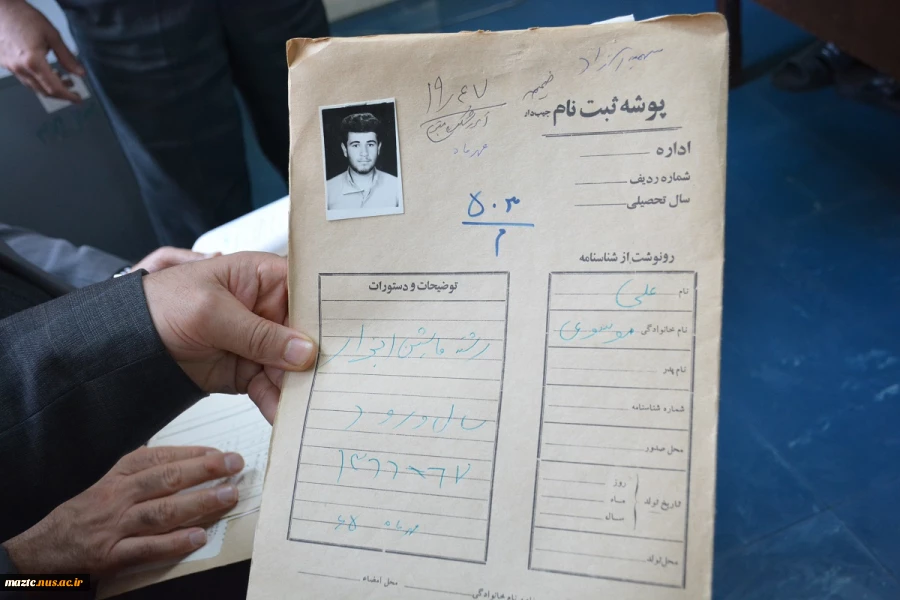 پوشه ثبت نام
اداره
شماره ردیف
سال تحصیلی
۵۰۳
م
مهرماه
رونوشت از شناسنامه
نام علی
نام خانوادگی موسوی
نام پدر
شماره شناسنامه
محل صدور
تاریخ تولد
روز
ماه
سال
محل تولد
توضیحات و دستورات
رشته ماشین افزار
سال ورود
۱۳۶۶-۶۷
مهرماه ۶۵
محل امضاء
نام خانوادگی
maztc.nus.ac.ir